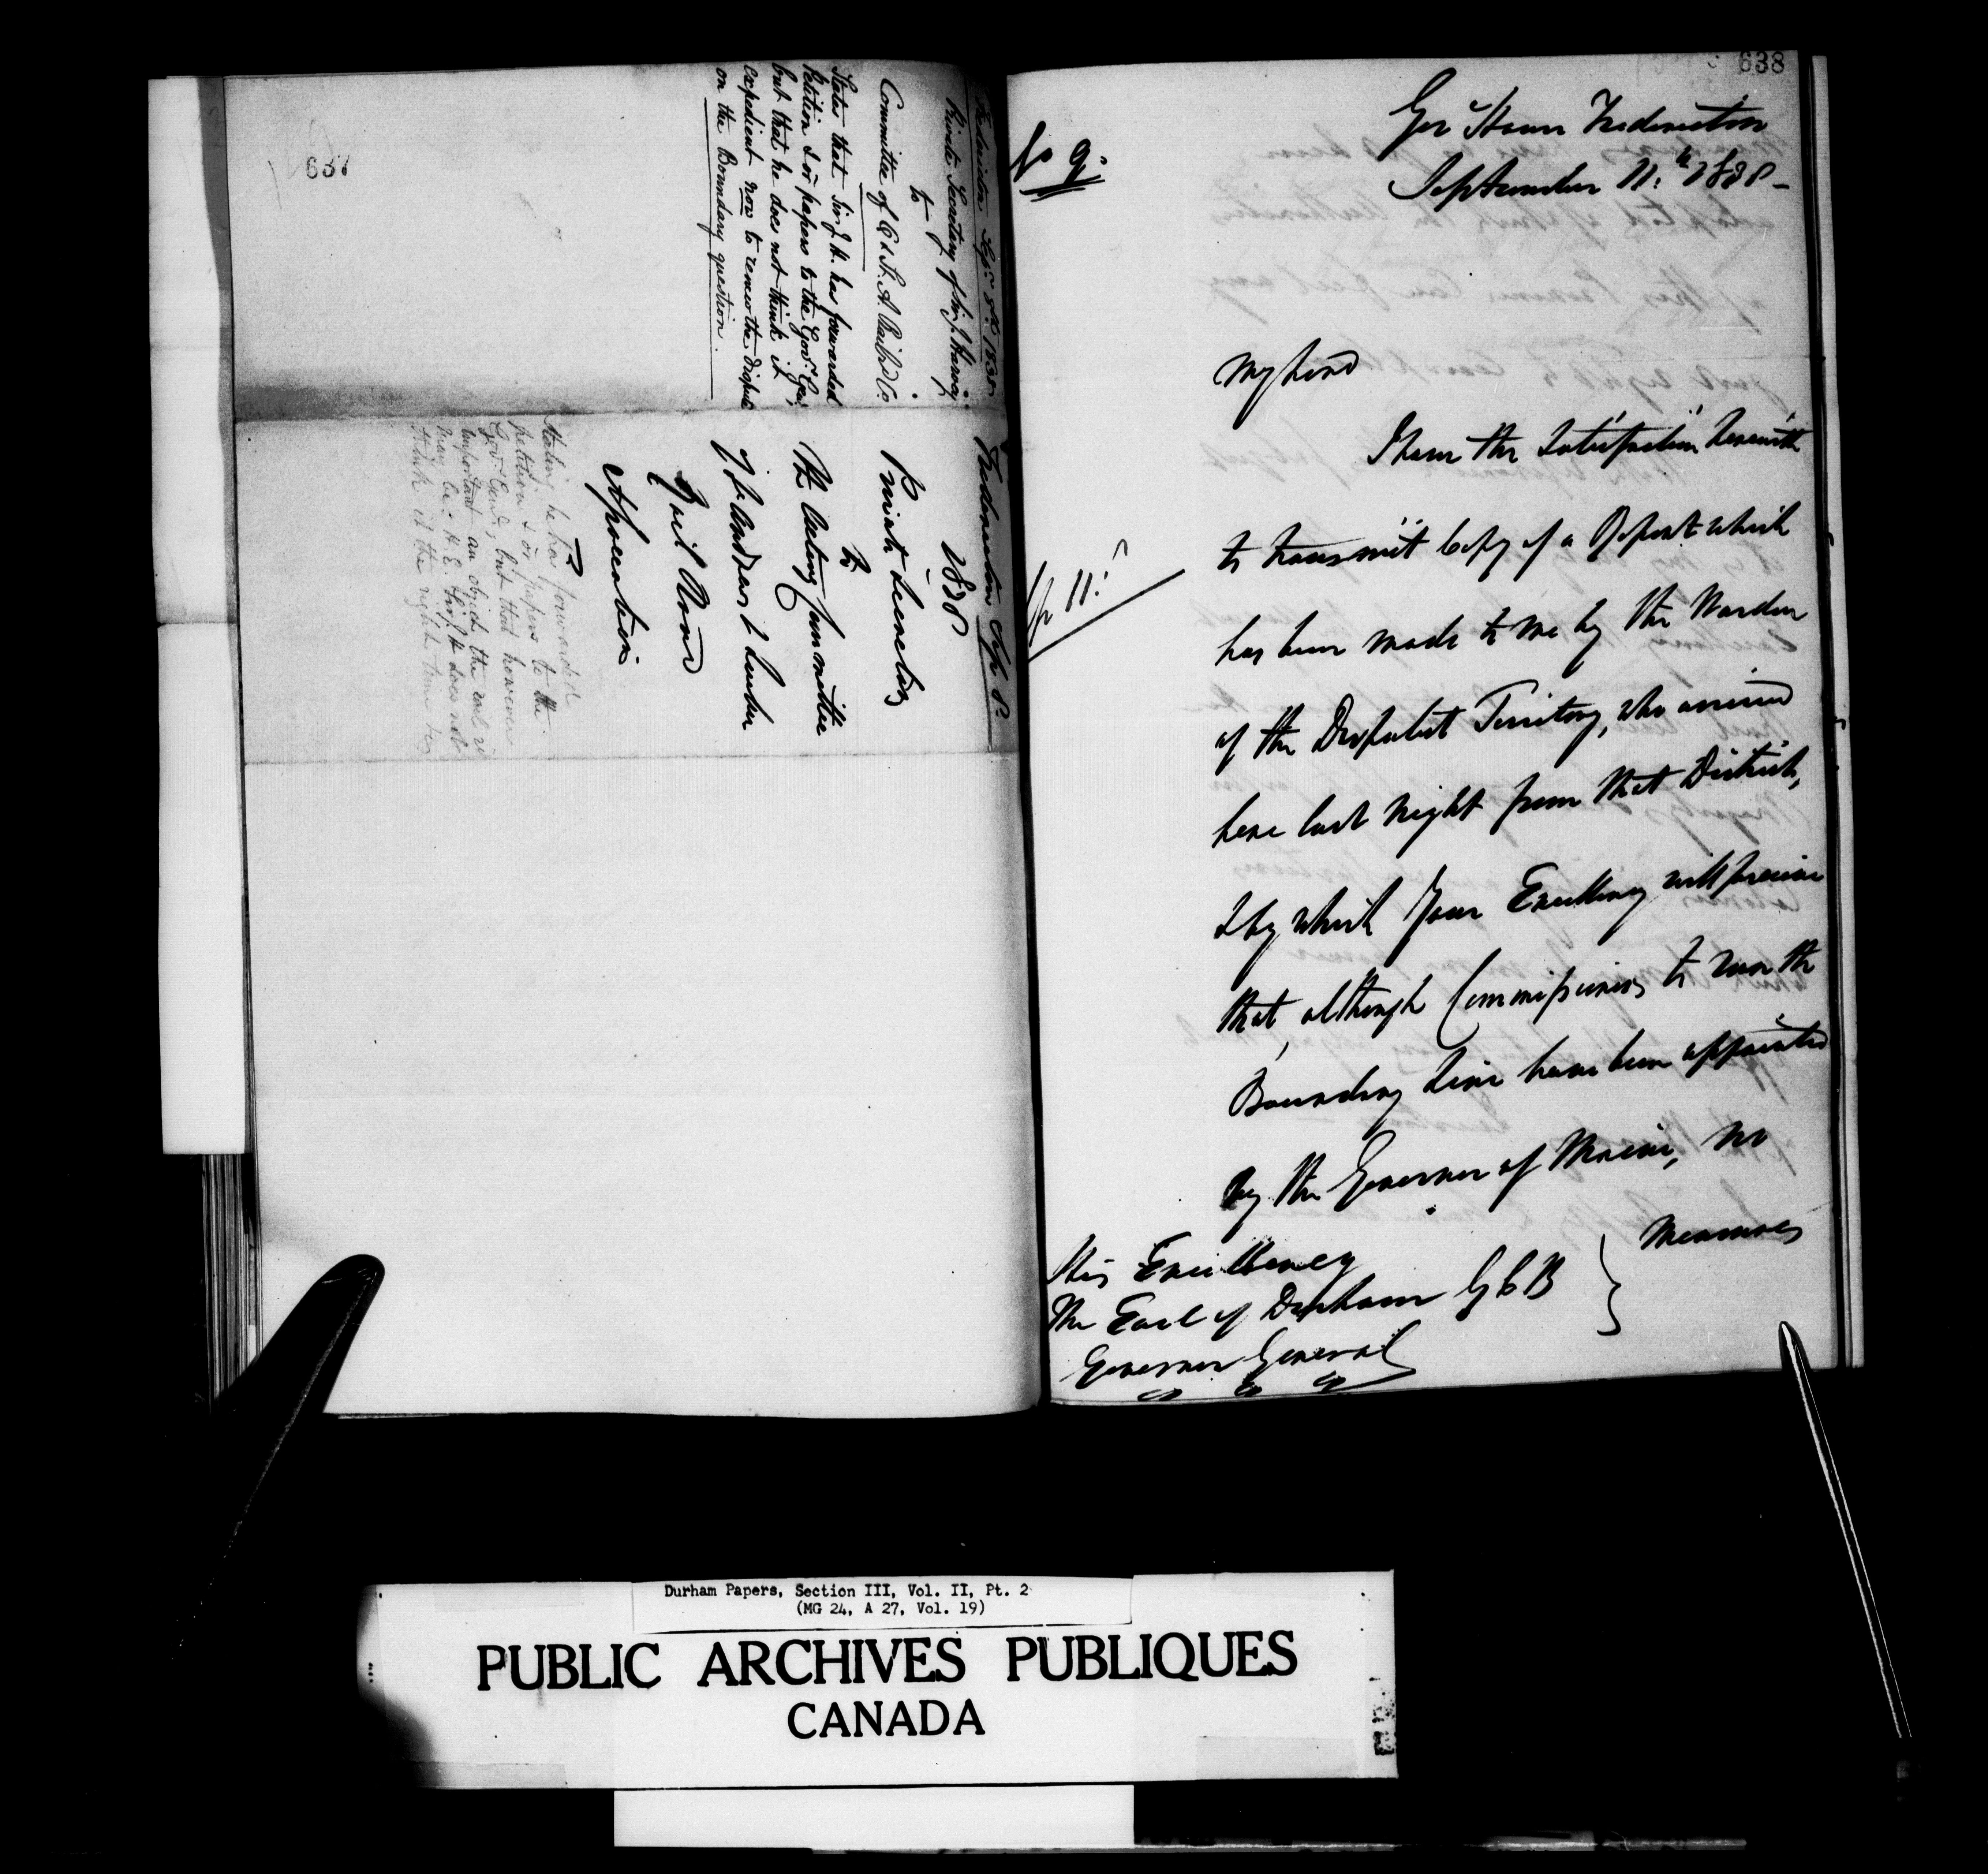 637
Fredericton Sepr. 8th. 1838.
Private Secretary of Sir J. Harvey
to
Committee of Q & St. A. Rail Rd. Co.
States that Sir J. H. has forwarded
Petition & or papers to the Govr. Genl.
but that he does not think it
expedient now to renew the dispute
on the Boundary question.
Fredericton Sep 8.
1838
Private Secretary
to
The Acting Committee
of St Andrews & Quebec
Rail Road
Association
Stating he has forwarded
petition & or papers to the
Govr Genl, but that however
important an object the rail rd
may be: H. E. Sir J H does not
think it the right time
638
Gov House Fredericton
September 11.th 1838 -
No 9.
My Lord
I have the satisfaction herewith
to transmit Copy of a Report which
has been made to me by the Warden
of the Disputed Territory, who arrived
here last night from that District,
& by which Your Excellency will perceive
that although Commissioners to run the
Boundary Line have been appointed
by the Governor of Maine, no
measures
His Excellency
The Earl of Durham G C B
Governor General
Durham Papers, Section III, Vol. II, Pt. 2
(MG 24, A 27, Vol. 19)
PUBLIC ARCHIVES PUBLIQUES
CANADA